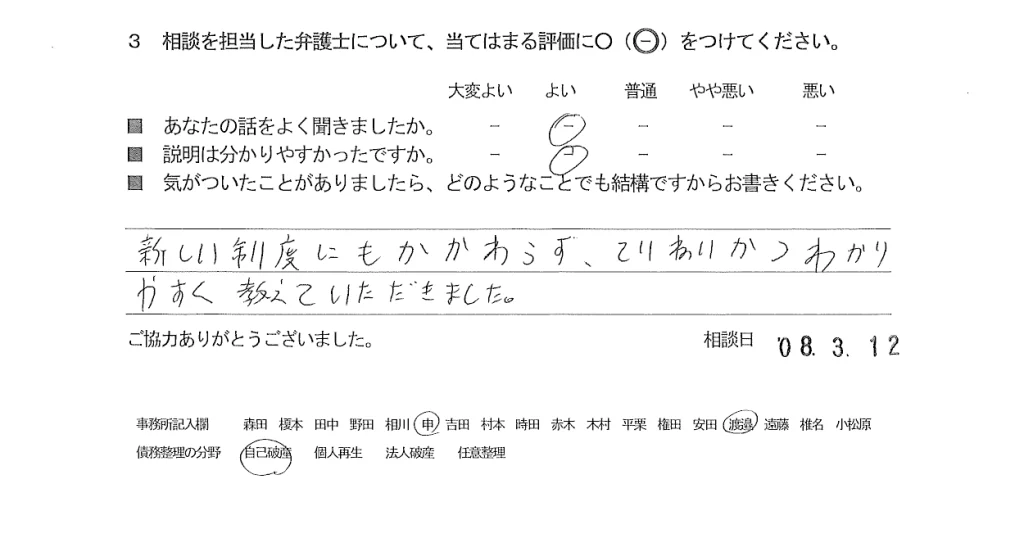 3 相談を担当した弁護士について、当てはまる評価に〇（㊀）をつけてください。
大変よい よい 普通 やや悪い 悪い
■ あなたの話をよく聞きましたか。 － － － － －
■ 説明は分かりやすかったですか。 － － － － －
■ 気がついたことがありましたら、どのようなことでも結構ですからお書きください。
新しい制度にもかかわらず、ていねいかつわかり
やすく教えていただきました。
ご協力ありがとうございました。 相談日 '08. 3. 12
事務所記入欄 森田 榎本 田中 野田 相川 申 吉田 村本 時田 赤木 木村 平栗 権田 安田 渡邉 遠藤 椎名 小松原
債務整理の分野 自己破産 個人再生 法人破産 任意整理